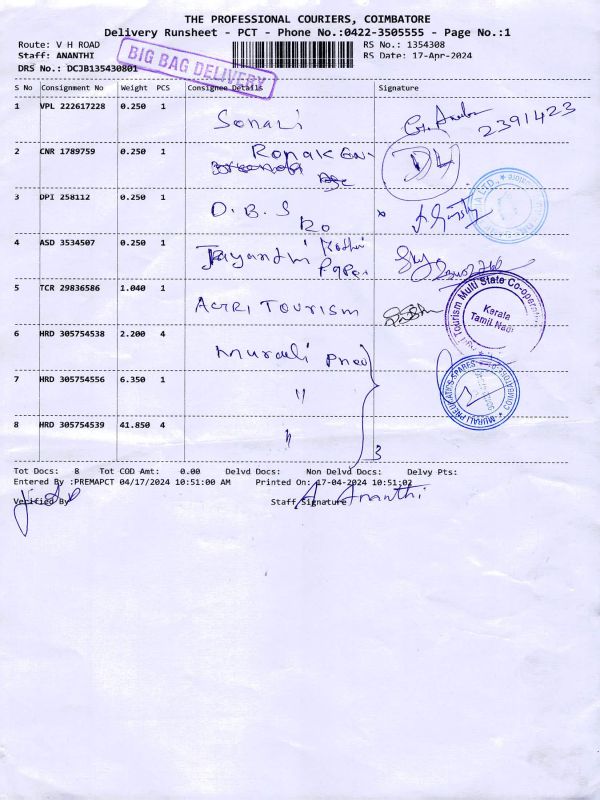 THE PROFESSIONAL COURIERS, COIMBATORE
Delivery Runsheet - PCT - Phone No.:0422-3505555 - Page No.:1
Route: V H ROAD RS No.: 1354308
Staff: ANANTHI RS Date: 17-Apr-2024
DRS No.: DCJB135430801
BIG BAG DELIVERY
S No Consignment No Weight PCS Consignee Details Signature
1 VPL 222617228 0.250 1 Sonali 2391423
2 CNR 1789759 0.250 1 RONAK
3 DPI 258112 0.250 1 D.B.S RO
4 ASD 3534507 0.250 1 Jayanthi
5 TCR 29836586 1.040 1 AGRI TOURISM
Tourism Multi State Co-operative
Kerala
Tamil Nadu
6 HRD 305754538 2.200 4 Murali Pneu
7 HRD 305754556 6.350 1 "
MURALI PNEUMATICS SPARES COIMBATORE
8 HRD 305754539 41.850 4 "
3
Tot Docs: 8 Tot COD Amt: 0.00 Delvd Docs: Non Delvd Docs: Delvy Pts:
Entered By :PREMAPCT 04/17/2024 10:51:00 AM Printed On: 17-04-2024 10:51:02
Verified By Staff Signature A. Ananthi